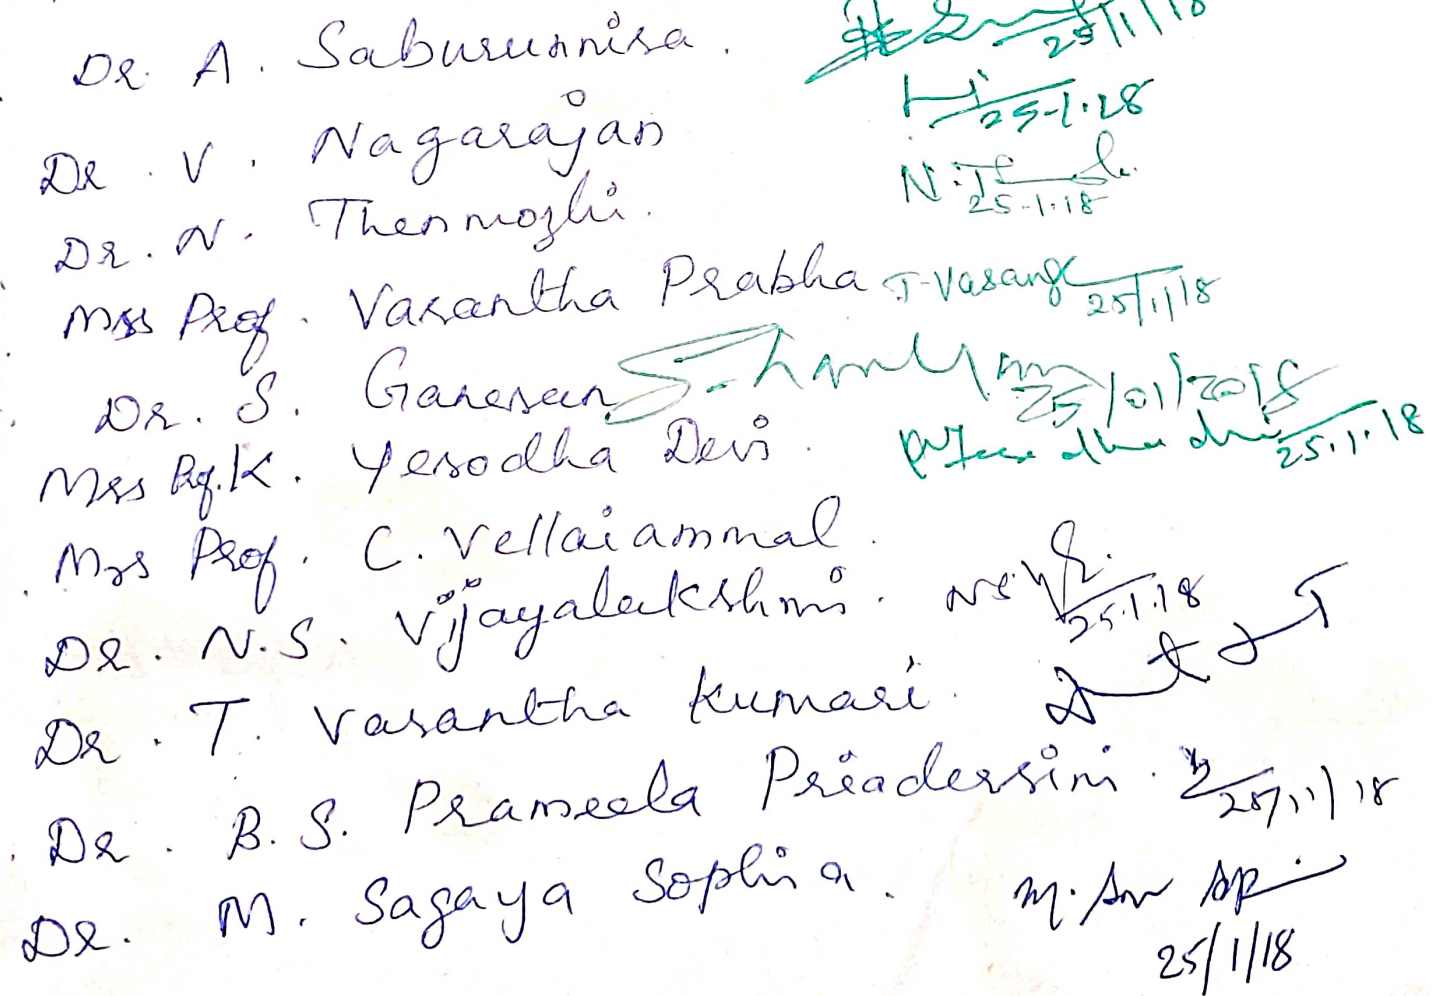 Dr. A. Saburunnisa. 25/1/18
Dr. V. Nagarajan 25-1-18
Dr. N. Thenmozhi. N. 25-1-18
Mrs Prof. Vasantha Prabha T-Vasant 25/1/18
Dr. S. Ganesan 25/01/2018
Mrs Prof. K. Yesodha Devi. 25.1.18
Mrs Prof. C. Vellaiammal.
Dr. N.S. Vijayalakshmi. NS. 25.1.18
Dr. T. Vasantha Kumari.
Dr. B. S. Prameela Priadersini. 25/1/18
Dr. M. Sagaya Sophia. M.
25/1/18